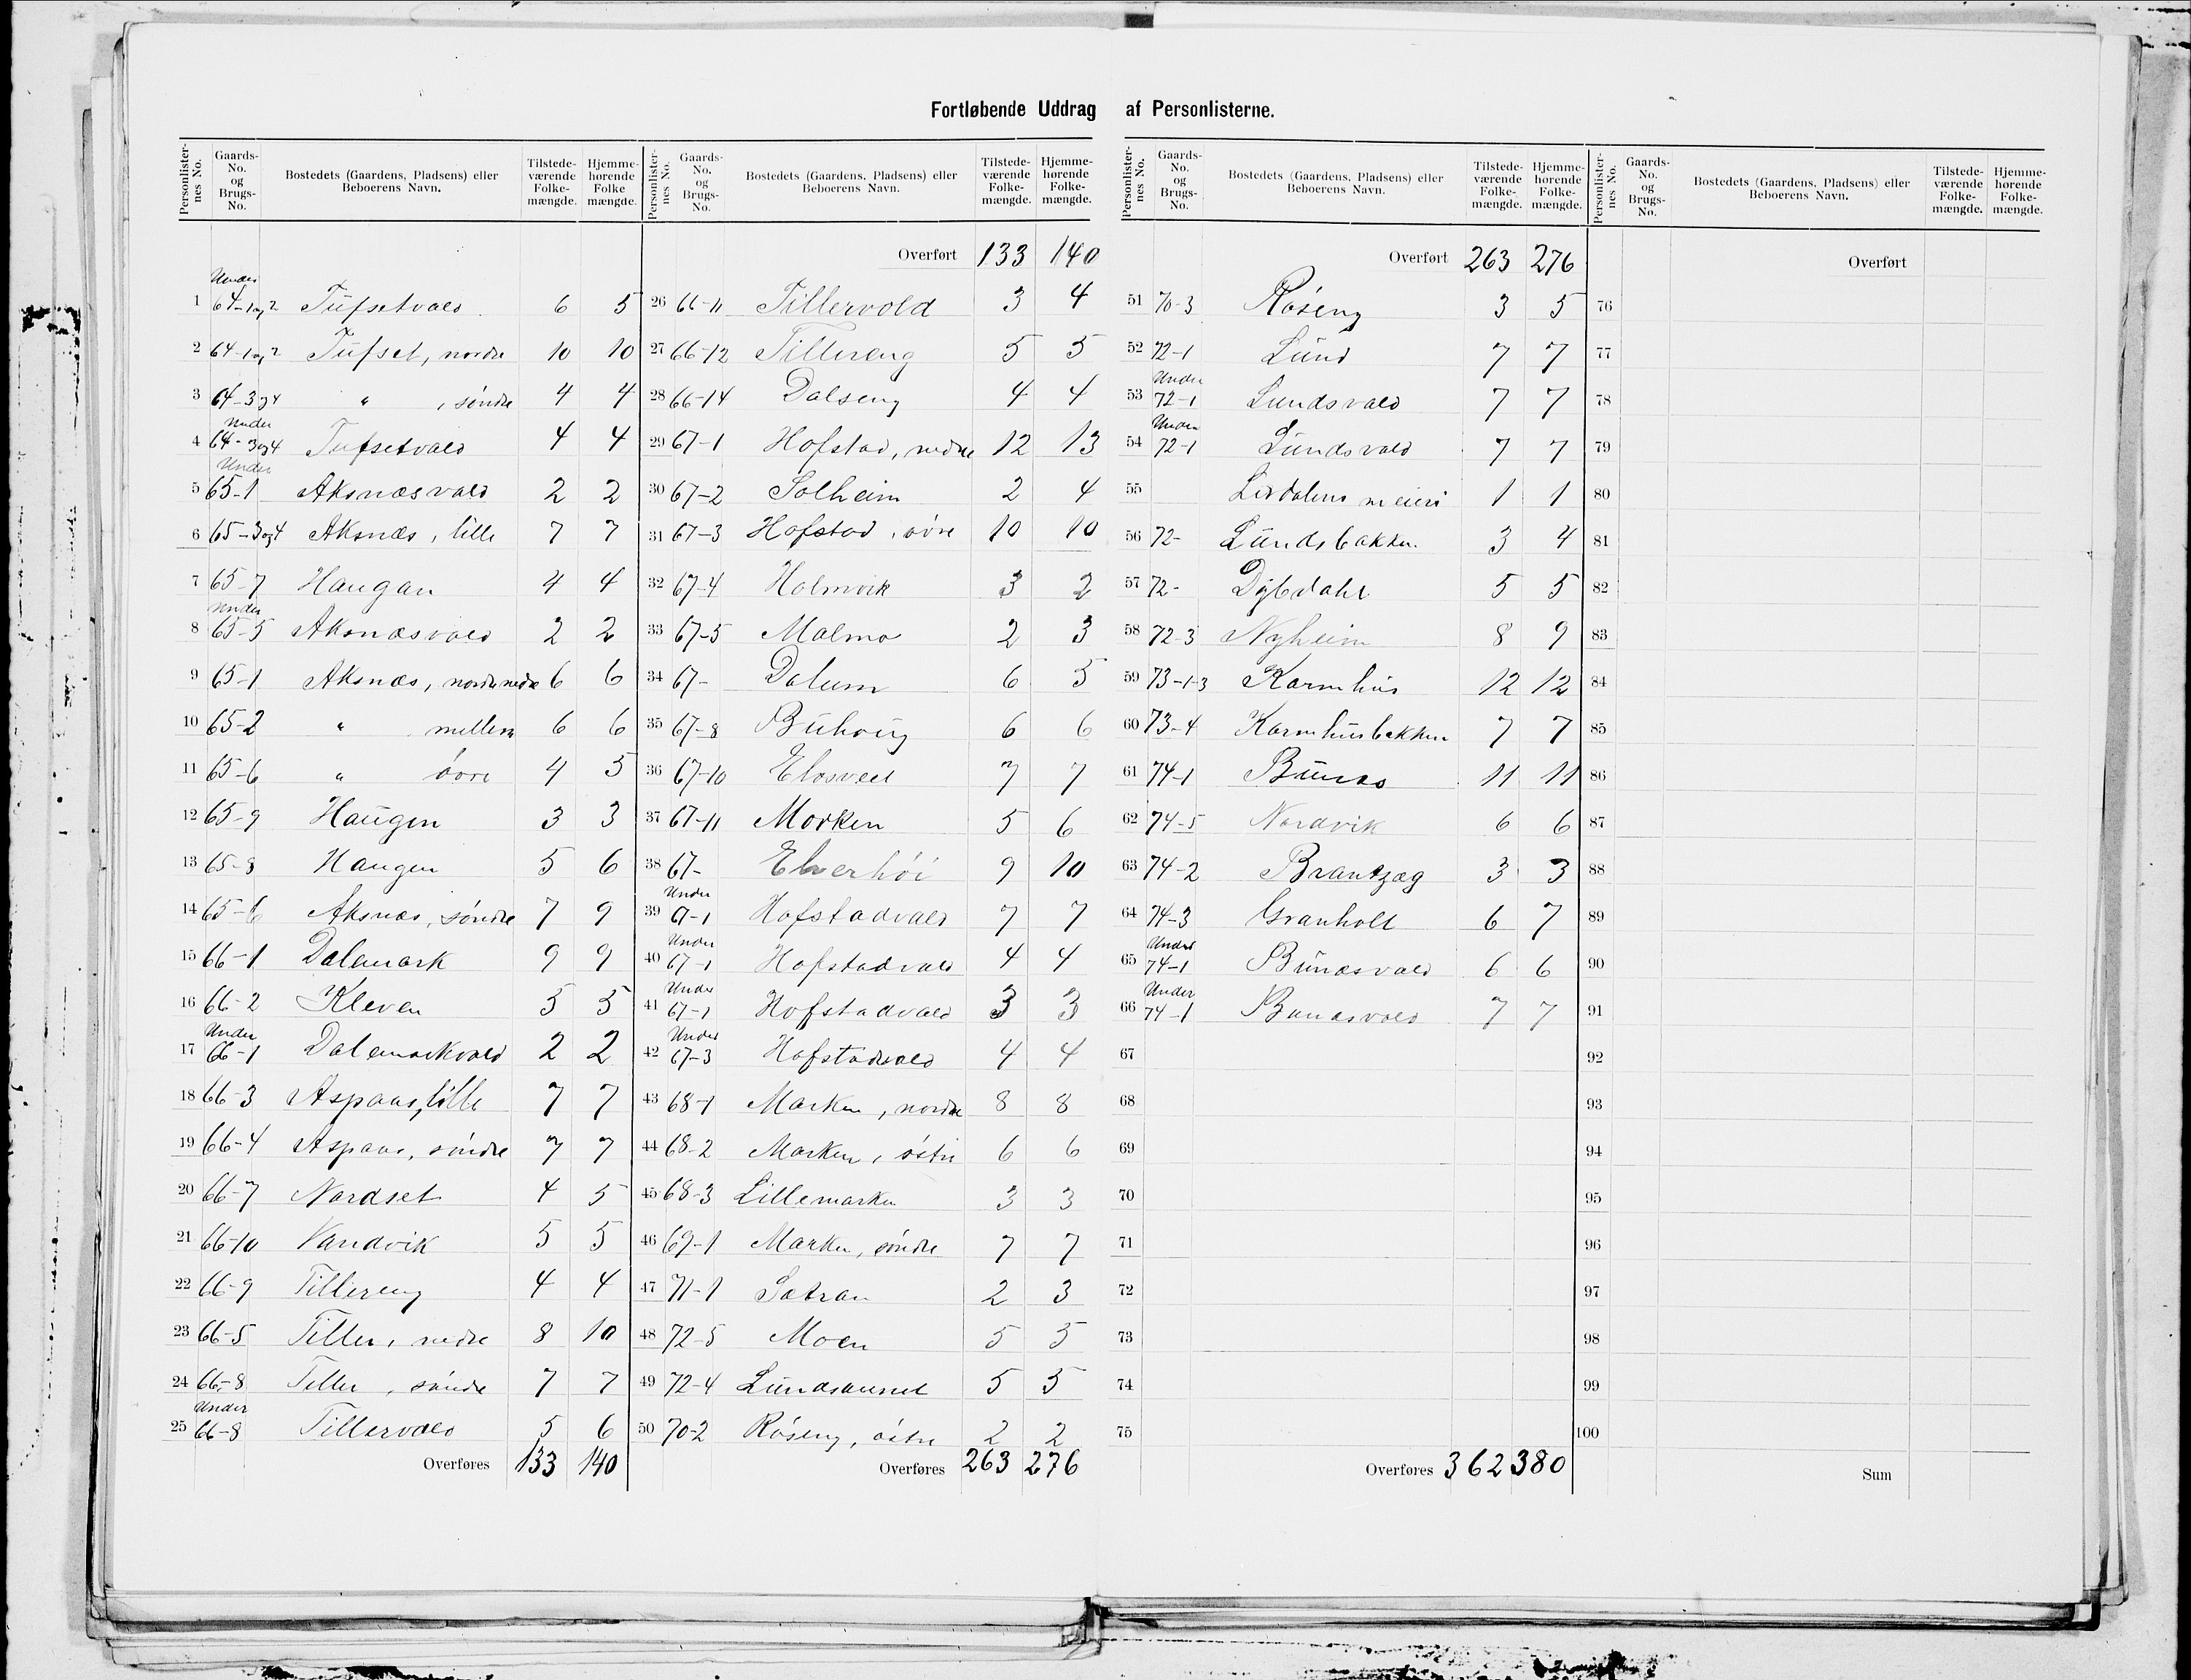 Fortløbende Uddrag af Personlisterne.
Personlisternes No. Gaards-No. og Brugs-No. Bostedets (Gaardens, Pladsens) eller Beboerens Navn. Tilstedeværende Folkemængde. Hjemmehørende Folkemængde.
1 Under 64-1og2 Tufsetvald 6 5
2 64-1og2 Tufset, nordre 10 10
3 64-3og4 " , søndre 4 4
4 Under 64-3og4 Tufsetvald 4 4
5 Under 65-1 Aksnæsvald 2 2
6 65-3og4 Aksnæs, lille 7 7
7 65-7 Haugan 4 4
8 Under 65-5 Aksnæsvald 2 2
9 65-1 Aksnæs, nordre nedre 6 6
10 65-2 " mellem 6 6
11 65-6 " øvre 4 5
12 65-9 Haugen 3 3
13 65-8 Haugen 5 6
14 65-6 Aksnæs, søndre 7 9
15 66-1 Dalemark 9 9
16 66-2 Kleven 5 5
17 Under 66-1 Dalemarkvald 2 2
18 66-3 Aspaas, lille 7 7
19 66-4 Aspaas, søndre 7 7
20 66-7 Nordset 4 5
21 66-10 Vandvik 5 5
22 66-9 Tillereng 4 4
23 66-5 Tiller, nedre 8 10
24 66-8 Tiller, søndre 7 7
25 Under 66-8 Tillervald 5 6
Overføres 133 140
Personlisternes No. Gaards-No. og Brugs-No. Bostedets (Gaardens, Pladsens) eller Beboerens Navn. Tilstedeværende Folkemængde. Hjemmehørende Folkemængde.
Overført 133 140
26 66-11 Tillervold 3 4
27 66-12 Tillereng 5 5
28 66-14 Dalseng 4 4
29 67-1 Hofstad, nedre 12 13
30 67-2 Solheim 2 4
31 67-3 Hofstad, øvre 10 10
32 67-4 Holmvik 3 2
33 67-5 Malmo 2 3
34 67- Dalum 6 5
35 67-8 6 6
36 67-10 7 7
37 67-11 Morken 5 6
38 67- Elverhöi 9 10
39 Under 67-1 Hofstadvald 7 7
40 Under 67-1 Hofstadvald 4 4
41 Under 67-1 Hofstadvald 3 3
42 Under 67-3 Hofstadvald 4 4
43 68-1 Marken, nordre 8 8
44 68-2 Marken, østre 6 6
45 68-3 Lillemarken 3 3
46 69-1 Marken, søndre 7 7
47 71-1 Sætran 2 3
48 72-5 Moen 5 5
49 72-4 Lundsaunet 5 5
50 70-2 Røseng, østre 2 2
Overføres 263 276
Personlisternes No. Gaards-No. og Brugs-No. Bostedets (Gaardens, Pladsens) eller Beboerens Navn. Tilstedeværende Folkemængde. Hjemmehørende Folkemængde.
Overført 263 276
51 70-3 Røseng 3 5
52 72-1 Lund 7 7
53 Under 72-1 Lundsvald 7 7
54 Under 72-1 Lundsvald 7 7
55 meieri 1 1
56 72- Lundsbakken 3 4
57 72- Dybdahl 5 5
58 72-3 Nyheim 8 9
59 73-1-3 Karmhus 12 12
60 73-4 Karmhusbakken 7 7
61 74-1 Bunæs 11 11
62 74-5 Nordvik 6 6
63 74-2 Brantzæg 3 3
64 74-3 Granholt 6 7
65 Under 74-1 Bunæsvald 6 6
66 Under 74-1 Bunæsvald 7 7
67
68
69
70
71
72
73
74
75
Overføres 362 380
Personlisternes No. Gaards-No. og Brugs-No. Bostedets (Gaardens, Pladsens) eller Beboerens Navn. Tilstedeværende Folkemængde. Hjemmehørende Folkemængde.
Overført
76
77
78
79
80
81
82
83
84
85
86
87
88
89
90
91
92
93
94
95
96
97
98
99
100
Sum